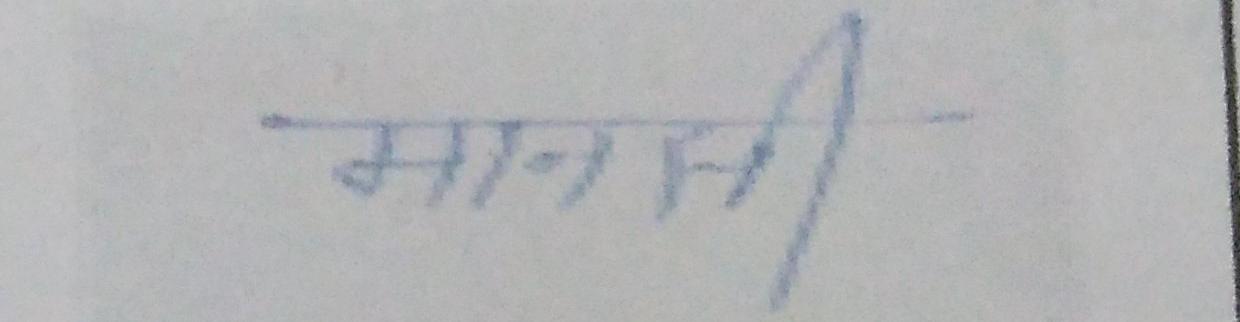 मानसी